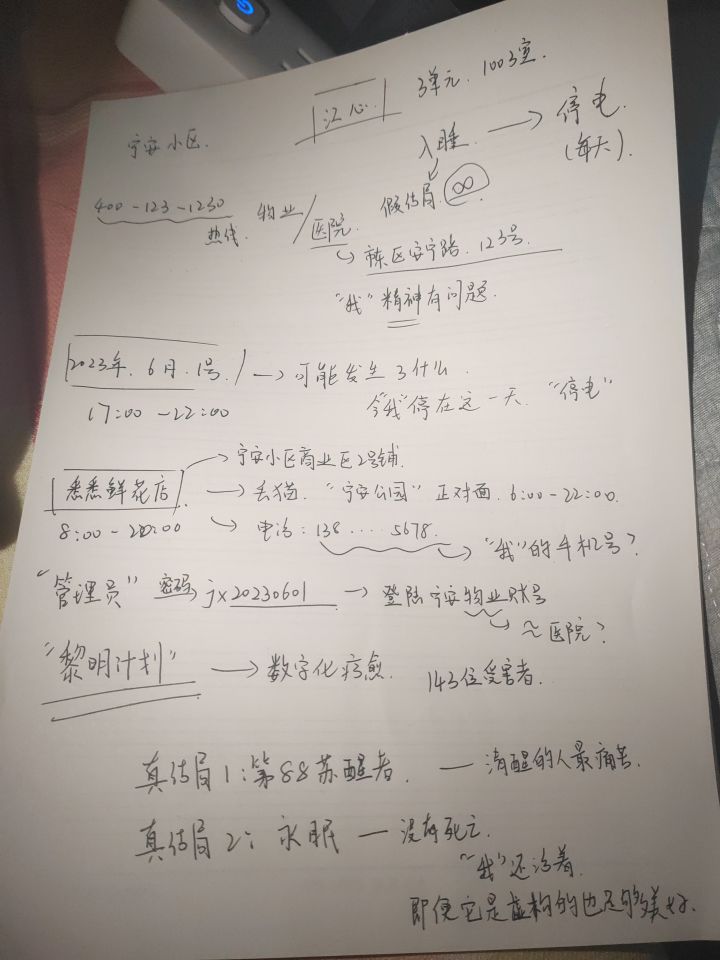 3单元. 1003室.
江心.
宁安小区.
入睡. → 停电.
(每天).
假结局. ∞.
400-123-1230 物业/医院.
热线.
东区安宁路. 123号.
"我"精神有问题.
2023年. 6月. 1号. → 可能发生了什么.
17:00-22:00
令"我"停在这一天. "停电"
→ 宁安小区商业区2号铺.
悉悉鲜花店. → 丢猫. "宁安公园"正对面. 6:00-22:00.
8:00-20:00 → 电话: 138....5678. → "我"的手机号?
"管理员" 密码 jx20230601 → 登陆宁安物业账号
≈医院?
"黎明计划" → 数字化疗愈. 143位受害者.
真结局1:第88苏醒者. — 清醒的人最痛苦.
真结局2: 永眠 — 没有死亡.
"我"还活着.
即便它是虚构的也足够美好.